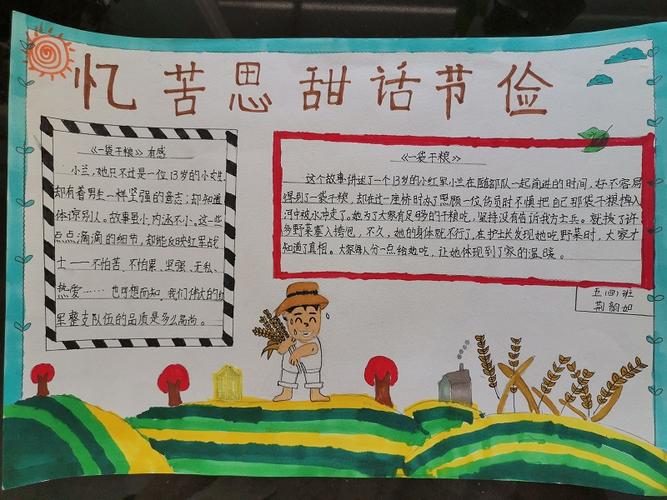 忆苦思甜话节俭
《一袋干粮》有感
小兰，她只不过是一位13岁的小女生
却有着男生一样坚强的意志；却知道
体凉别人。故事虽小，内涵不小。这些
点点滴滴的细节，却能反映红军战
士——不怕苦、不怕累、坚强、无私、
热爱……也可想而知，我们伟大的红
军整支队伍的品质是多么高尚。
《一袋干粮》
这个故事讲述了一个13岁的小红军小兰在随部队一起前进的时间，好不容易
得到了一袋干粮，却在过一座桥时为了照顾一位伤员时不慎把自己那袋干粮掉入
河中被水冲走了。她为了大家有足够的干粮吃，坚持没有告诉我方士兵。就拔了许
多野菜塞入挎包，不久，她的身体就不行了，在护士长发现她吃野菜时，大家才
知道了真相。大家每人分一点给她吃，让她体现到了家的温暖。
五（四）班
荆韵如